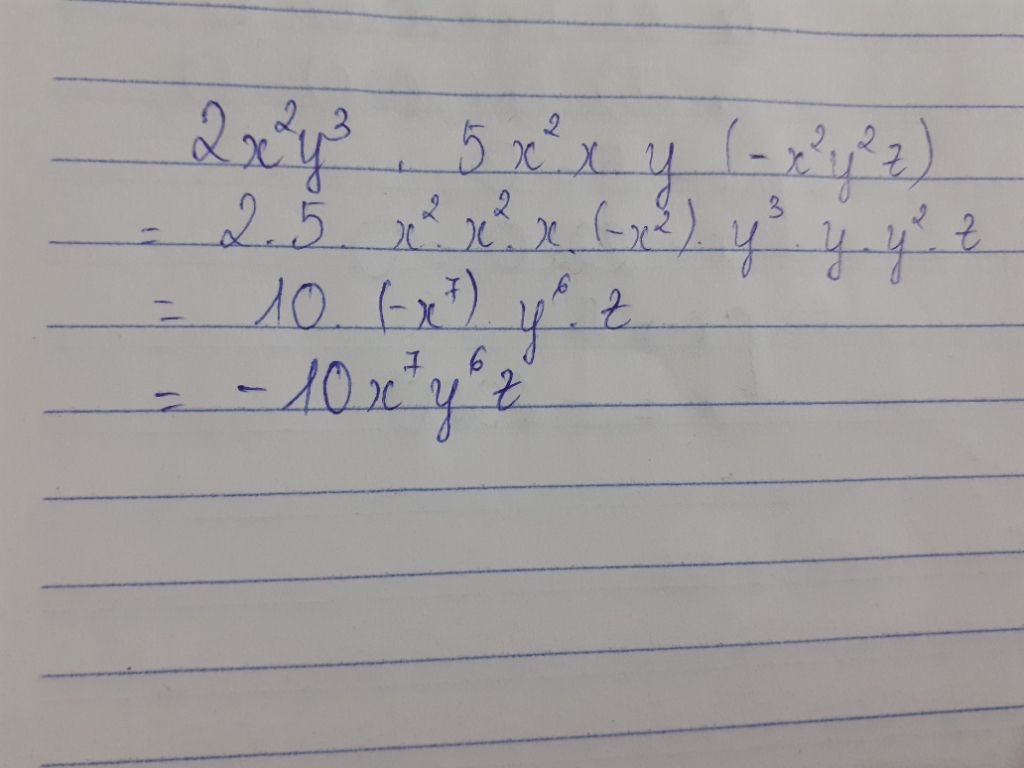 2x²y³ . 5x².x y (-x²y²z)
= 2.5. x².x².x.(-x²).y³.y.y².z
= 10. (-x⁷) y⁶.z
= -10x⁷y⁶z